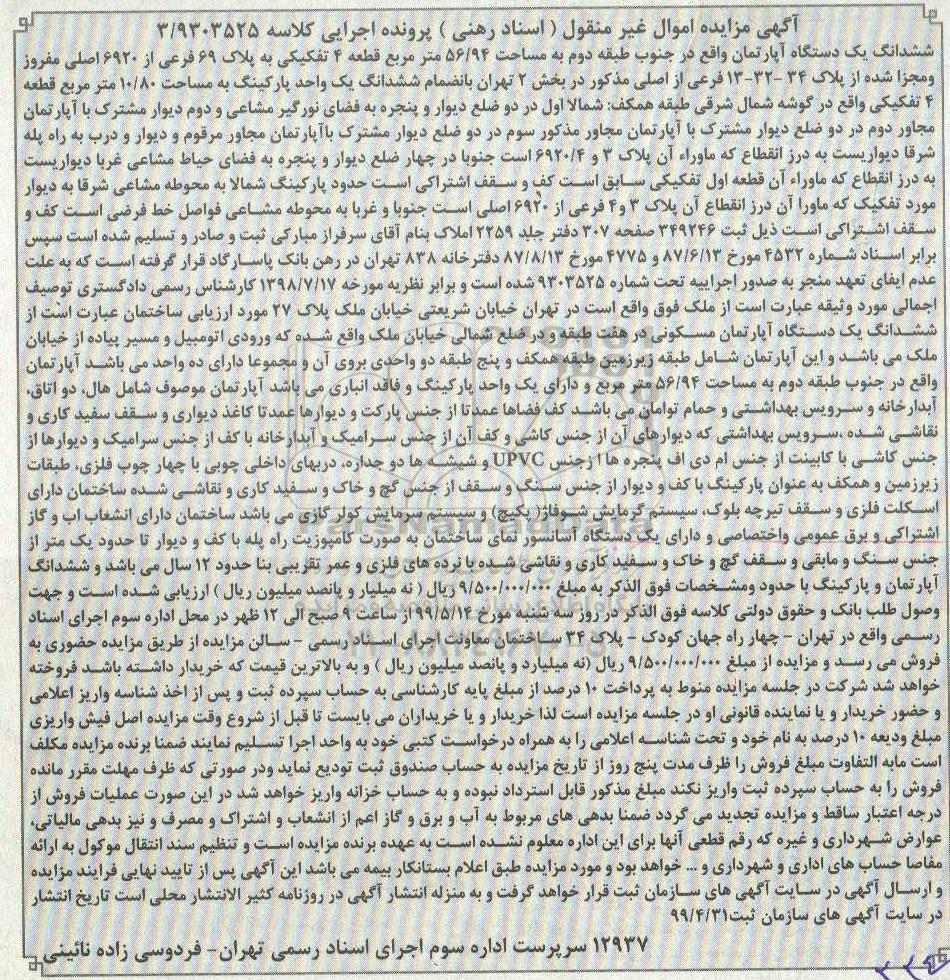 آگهی مزایده اموال غیر منقول ( اسناد رهنی ) پرونده اجرایی کلاسه ۳/۹۳۰۳۵۲۵
ششدانگ یک دستگاه آپارتمان واقع در جنوب طبقه دوم به مساحت ۵۶/۹۴ متر مربع قطعه ۴ تفکیکی به پلاک ۶۹ فرعی از ۶۹۲۰ اصلی مفروز
ومجزا شده از پلاک ۳۴ -۳۲-۱۳ فرعی از اصلی مذکور در بخش ۲ تهران بانضمام ششدانگ یک واحد پارکینگ به مساحت ۱۰/۸۰ متر مربع قطعه
۴ تفکیکی واقع در گوشه شمال شرقی طبقه همکف: شمالا اول در دو ضلع دیوار و پنجره به فضای نورگیر مشاعی و دوم دیوار مشترک با آپارتمان
مجاور دوم در دو ضلع دیوار مشترک با آپارتمان مجاور مذکور سوم در دو ضلع دیوار مشترک باآپارتمان مجاور مرقوم و دیوار و درب به راه پله
شرقا دیواریست به درز انقطاع که ماوراء آن پلاک ۳ و ۶۹۲۰/۴ است جنوبا در چهار ضلع دیوار و پنجره به فضای حیاط مشاعی غربا دیواریست
به درز انقطاع که ماوراء آن قطعه اول تفکیکی سابق است کف و سقف اشتراکی است حدود پارکینگ شمالا به محوطه مشاعی شرقا به دیوار
مورد تفکیک که ماورا آن درز انقطاع آن پلاک ۳ و۴ فرعی از ۶۹۲۰ اصلی است جنوبا و غربا به محوطه مشاعی فواصل خط فرضی است کف و
سقف اشتراکی است ذیل ثبت ۳۴۹۲۴۶ صفحه ۳۰۷ دفتر جلد ۲۲۵۹ املاک بنام آقای سرفراز مبارکی ثبت و صادر و تسلیم شده است سپس
برابر اسناد شماره ۴۵۳۲ مورخ ۸۷/۶/۱۳ و ۴۷۷۵ مورخ ۸۷/۸/۱۳ دفترخانه ۸۳۸ تهران در رهن بانک پاسارگاد قرار گرفته است که به علت
عدم ایفای تعهد منجر به صدور اجراییه تحت شماره ۹۳۰۳۵۲۵ شده است و برابر نظریه مورخه ۱۳۹۸/۷/۱۷ کارشناس رسمی دادگستری توصیف
اجمالی مورد وثیقه عبارت است از ملک فوق واقع است در تهران خیابان شریعتی خیابان ملک پلاک ۲۷ مورد ارزیابی ساختمان عبارت است از
ششدانگ یک دستگاه آپارتمان مسکونی در هفت طبقه و در ضلع شمالی خیابان ملک واقع شده که ورودی اتومبیل و مسیر پیاده از خیابان
ملک می باشد و این آپارتمان شامل طبقه زیرزمین طبقه همکف و پنج طبقه دو واحدی بروی آن و مجموعا دارای ده واحد می باشد آپارتمان
واقع در جنوب طبقه دوم به مساحت ۵۶/۹۴ متر مربع و دارای یک واحد پارکینگ و فاقد انباری می باشد آپارتمان موصوف شامل هال، دو اتاق،
آبدارخانه و سرویس بهداشتی و حمام توامان می باشد کف فضاها عمدتا از جنس پارکت و دیوارها عمدتا کاغذ دیواری و سقف سفید کاری و
نقاشی شده ،سرویس بهداشتی که دیوارهای آن از جنس کاشی و کف آن از جنس سرامیک و آبدارخانه با کف از جنس سرامیک و دیوارها از
جنس کاشی با کابینت از جنس ام دی اف پنجره ها ا زجنس UPVC و شیشه ها دو جداره، دربهای داخلی چوبی با چهار چوب فلزی، طبقات
زیرزمین و همکف به عنوان پارکینگ با کف و دیوار از جنس سنگ و سقف از جنس گچ و خاک و سفید کاری و نقاشی شده ساختمان دارای
اسکلت فلزی و سقف تیرچه بلوک، سیستم گرمایش شوفاژ( پکیج) و سیستم سرمایش کولر گازی می باشد ساختمان دارای انشعاب اب و گاز
اشتراکی و برق عمومی واختصاصی و دارای یک دستگاه آسانسور نمای ساختمان به صورت کامپوزیت راه پله با کف و دیوار تا حدود یک متر از
جنس سنگ و مابقی و سقف گچ و خاک و سفید کاری و نقاشی شده با نرده های فلزی و عمر تقریبی بنا حدود ۱۲ سال می باشد و ششدانگ
آپارتمان و پارکینگ با حدود ومشخصات فوق الذکر به مبلغ ۹/۵۰۰/۰۰۰/۰۰۰ ریال ( نه میلیار و پانصد میلیون ریال ) ارزیابی شده است و جهت
وصول طلب بانک و حقوق دولتی کلاسه فوق الذکر در روز سه شنبه مورخ ۹۹/۵/۱۴ از ساعت ۹ صبح الی ۱۲ ظهر در محل اداره سوم اجرای اسناد
رسمی واقع در تهران - چهار راه جهان کودک - پلاک ۳۴ ساختمان معاونت اجرای اسناد رسمی - سالن مزایده از طریق مزایده حضوری به
فروش می رسد و مزایده از مبلغ ۹/۵۰۰/۰۰۰/۰۰۰ ریال (نه میلیارد و پانصد میلیون ریال ) و به بالاترین قیمت که خریدار داشته باشد فروخته
خواهد شد شرکت در جلسه مزایده منوط به پرداخت ۱۰ درصد از مبلغ پایه کارشناسی به حساب سپرده ثبت و پس از اخذ شناسه واریز اعلامی
و حضور خریدار و یا نماینده قانونی او در جلسه مزایده است لذا خریدار و یا خریداران می بایست تا قبل از شروع وقت مزایده اصل فیش واریزی
مبلغ ودیعه ۱۰ درصد به نام خود و تحت شناسه اعلامی را به همراه درخواست کتبی خود به واحد اجرا تسلیم نمایند ضمنا برنده مزایده مکلف
است مابه التفاوت مبلغ فروش را ظرف مدت پنج روز از تاریخ مزایده به حساب صندوق ثبت تودیع نماید ودر صورتی که ظرف مهلت مقرر مانده
فروش را به حساب سپرده ثبت واریز نکند مبلغ مذکور قابل استرداد نبوده و به حساب خزانه واریز خواهد شد در این صورت عملیات فروش از
درجه اعتبار ساقط و مزایده تجدید می گردد ضمنا بدهی های مربوط به آب و برق و گاز اعم از انشعاب و اشتراک و مصرف و نیز بدهی مالیاتی،
عوارض شهرداری و غیره که رقم قطعی آنها برای این اداره معلوم نشده است به عهده برنده مزایده است و تنظیم سند انتقال موکول به ارائه
مفاصا حساب های اداری و شهرداری و ... خواهد بود و مورد مزایده طبق اعلام بستانکار بیمه می باشد این آگهی پس از تایید نهایی فرایند مزایده
و ارسال آگهی در سایت آگهی های سازمان ثبت قرار خواهد گرفت و به منزله انتشار آگهی در روزنامه کثیر الانتشار محلی است تاریخ انتشار
در سایت آگهی های سازمان ثبت۹۹/۴/۳۱
۱۲۹۳۷ سرپرست اداره سوم اجرای اسناد رسمی تهران- فردوسی زاده نائینی